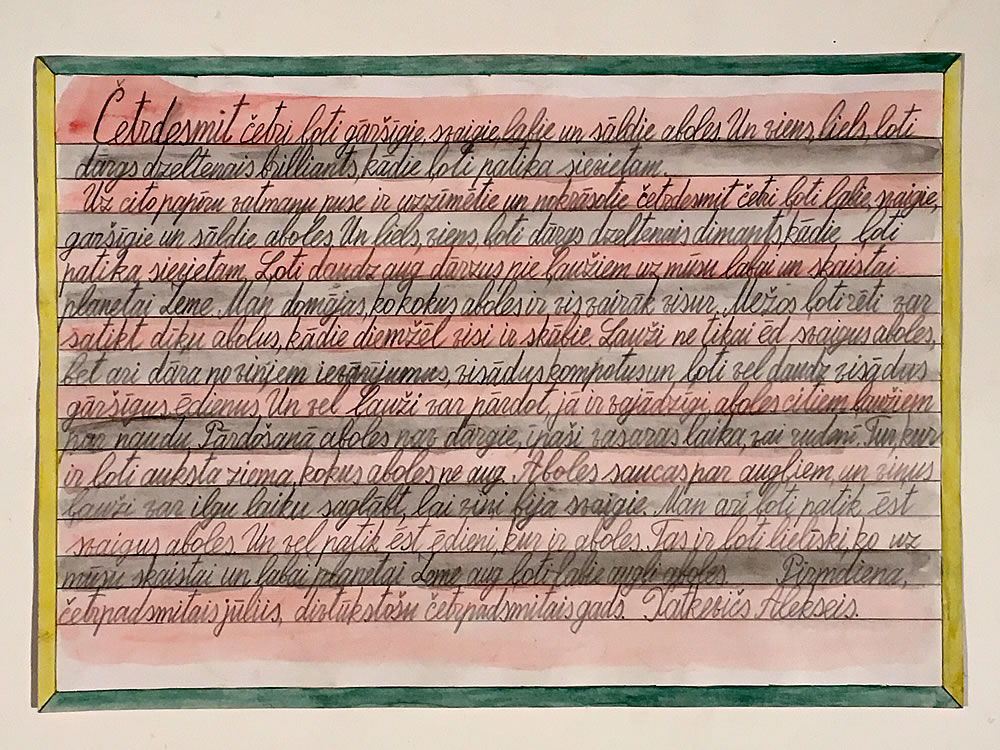 Četrdesmit četri ļoti gāršīgie, svaigie, labie un sāldie aboles. Un viens, liels, ļoti
dārgs dzeltenais brilliants, kādie ļoti patika sievietam.
Uz cito papīru vatmanu puse ir uzzīmētie un nokrāsotie četrdesmit četri ļoti labie, svaigie,
garšīgie un sāldie aboles. Un liels, viens, ļoti dārgs dzeltenais dimants, kādie ļoti
patika sievietam. Ļoti daudz aug dārzus pie ļaužiem uz mūsu labai un skaistai
planetai Zeme. Man domājas, ko kokus aboles ir vis vairāk visur. Mežos ļoti rēti var
satikt dīku abolus, kādie diemžēl visi ir skābie. Ļauži ne tikai ēd svaigus aboles,
bet ari dāra no viņiem ievārījumus, visādus kompotus un ļoti vel daudz visādus
gāršīgus ēdienus. Un vel ļauži var pārdot, jā ir vajādzīgi aboles citiem ļaužiem
par naudu. Pārdošanā aboles nav dārgie, īpaši vasaras laika, vai rudenī. Tur, kur
ir ļoti auksta ziema, kokus aboles ne aug. Aboles saucas par augļiem, un viņus
ļauži var ilgu laiku saglābt, lai viņi bija svaigie. Man ari ļoti patik ēst
svaigus aboles. Un vel patik ēst ēdieni, kur ir aboles. Tas ir ļoti lieliski, ko uz
mūsu skaistai un labai planetai Zeme aug ļoti labie augļi aboles. Pirmdiena,
četrpadsmitais jūliis, divtūkstošu četrpadsmitais gads. Vatkevičs Alekseis.